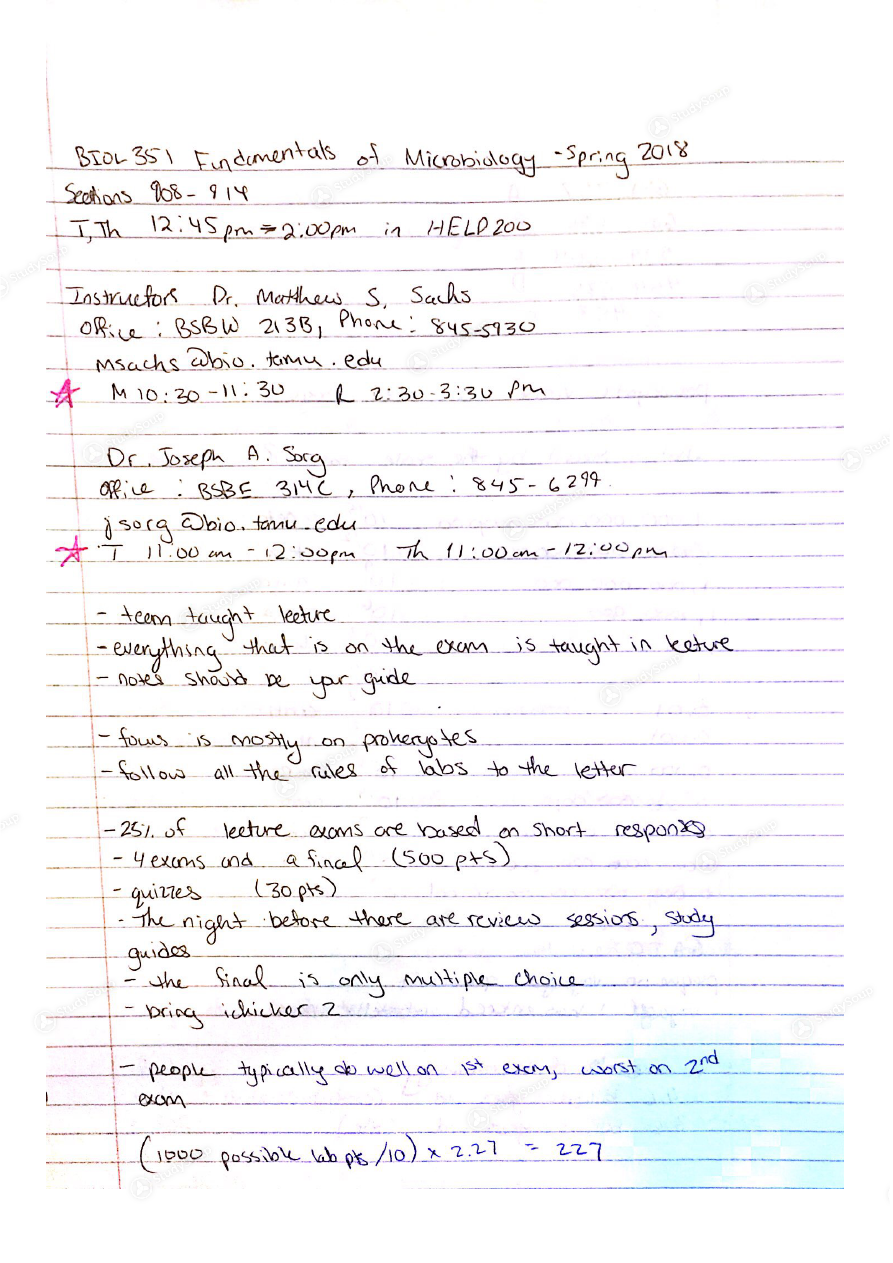 BIOL 351 Fundamentals of Microbiology - Spring 2018
Sections 908 - 914
T, Th 12:45 pm - 2:00pm in HELD 200
Instructors Dr. Matthew S. Sachs
Office : BSBW 213B, Phone : 845-5930
msachs @bio.tamu.edu
M 10:30 - 11:30 R 2:30-3:30 pm
Dr. Joseph A. Sorg
office : BSBE 314C, Phone : 845-6299
jsorg @bio.tamu.edu
T 11:00 am - 12:00pm Th 11:00 am - 12:00pm
- team taught lecture
- everything that is on the exam is taught in lecture
- notes should be your guide
- focus is mostly on prokaryotes
- follow all the rules of labs to the letter
- 25% of lecture exams are based on short response
- 4 exams and a final (500 pts)
- quizzes (30 pts)
- The night before there are review sessions, study
guides
- the final is only multiple choice
- bring iclicker 2
- people typically do well on 1st exam, worst on 2nd
exam
(1000 possible lab pts /10) x 2.27 = 227
StudySoup